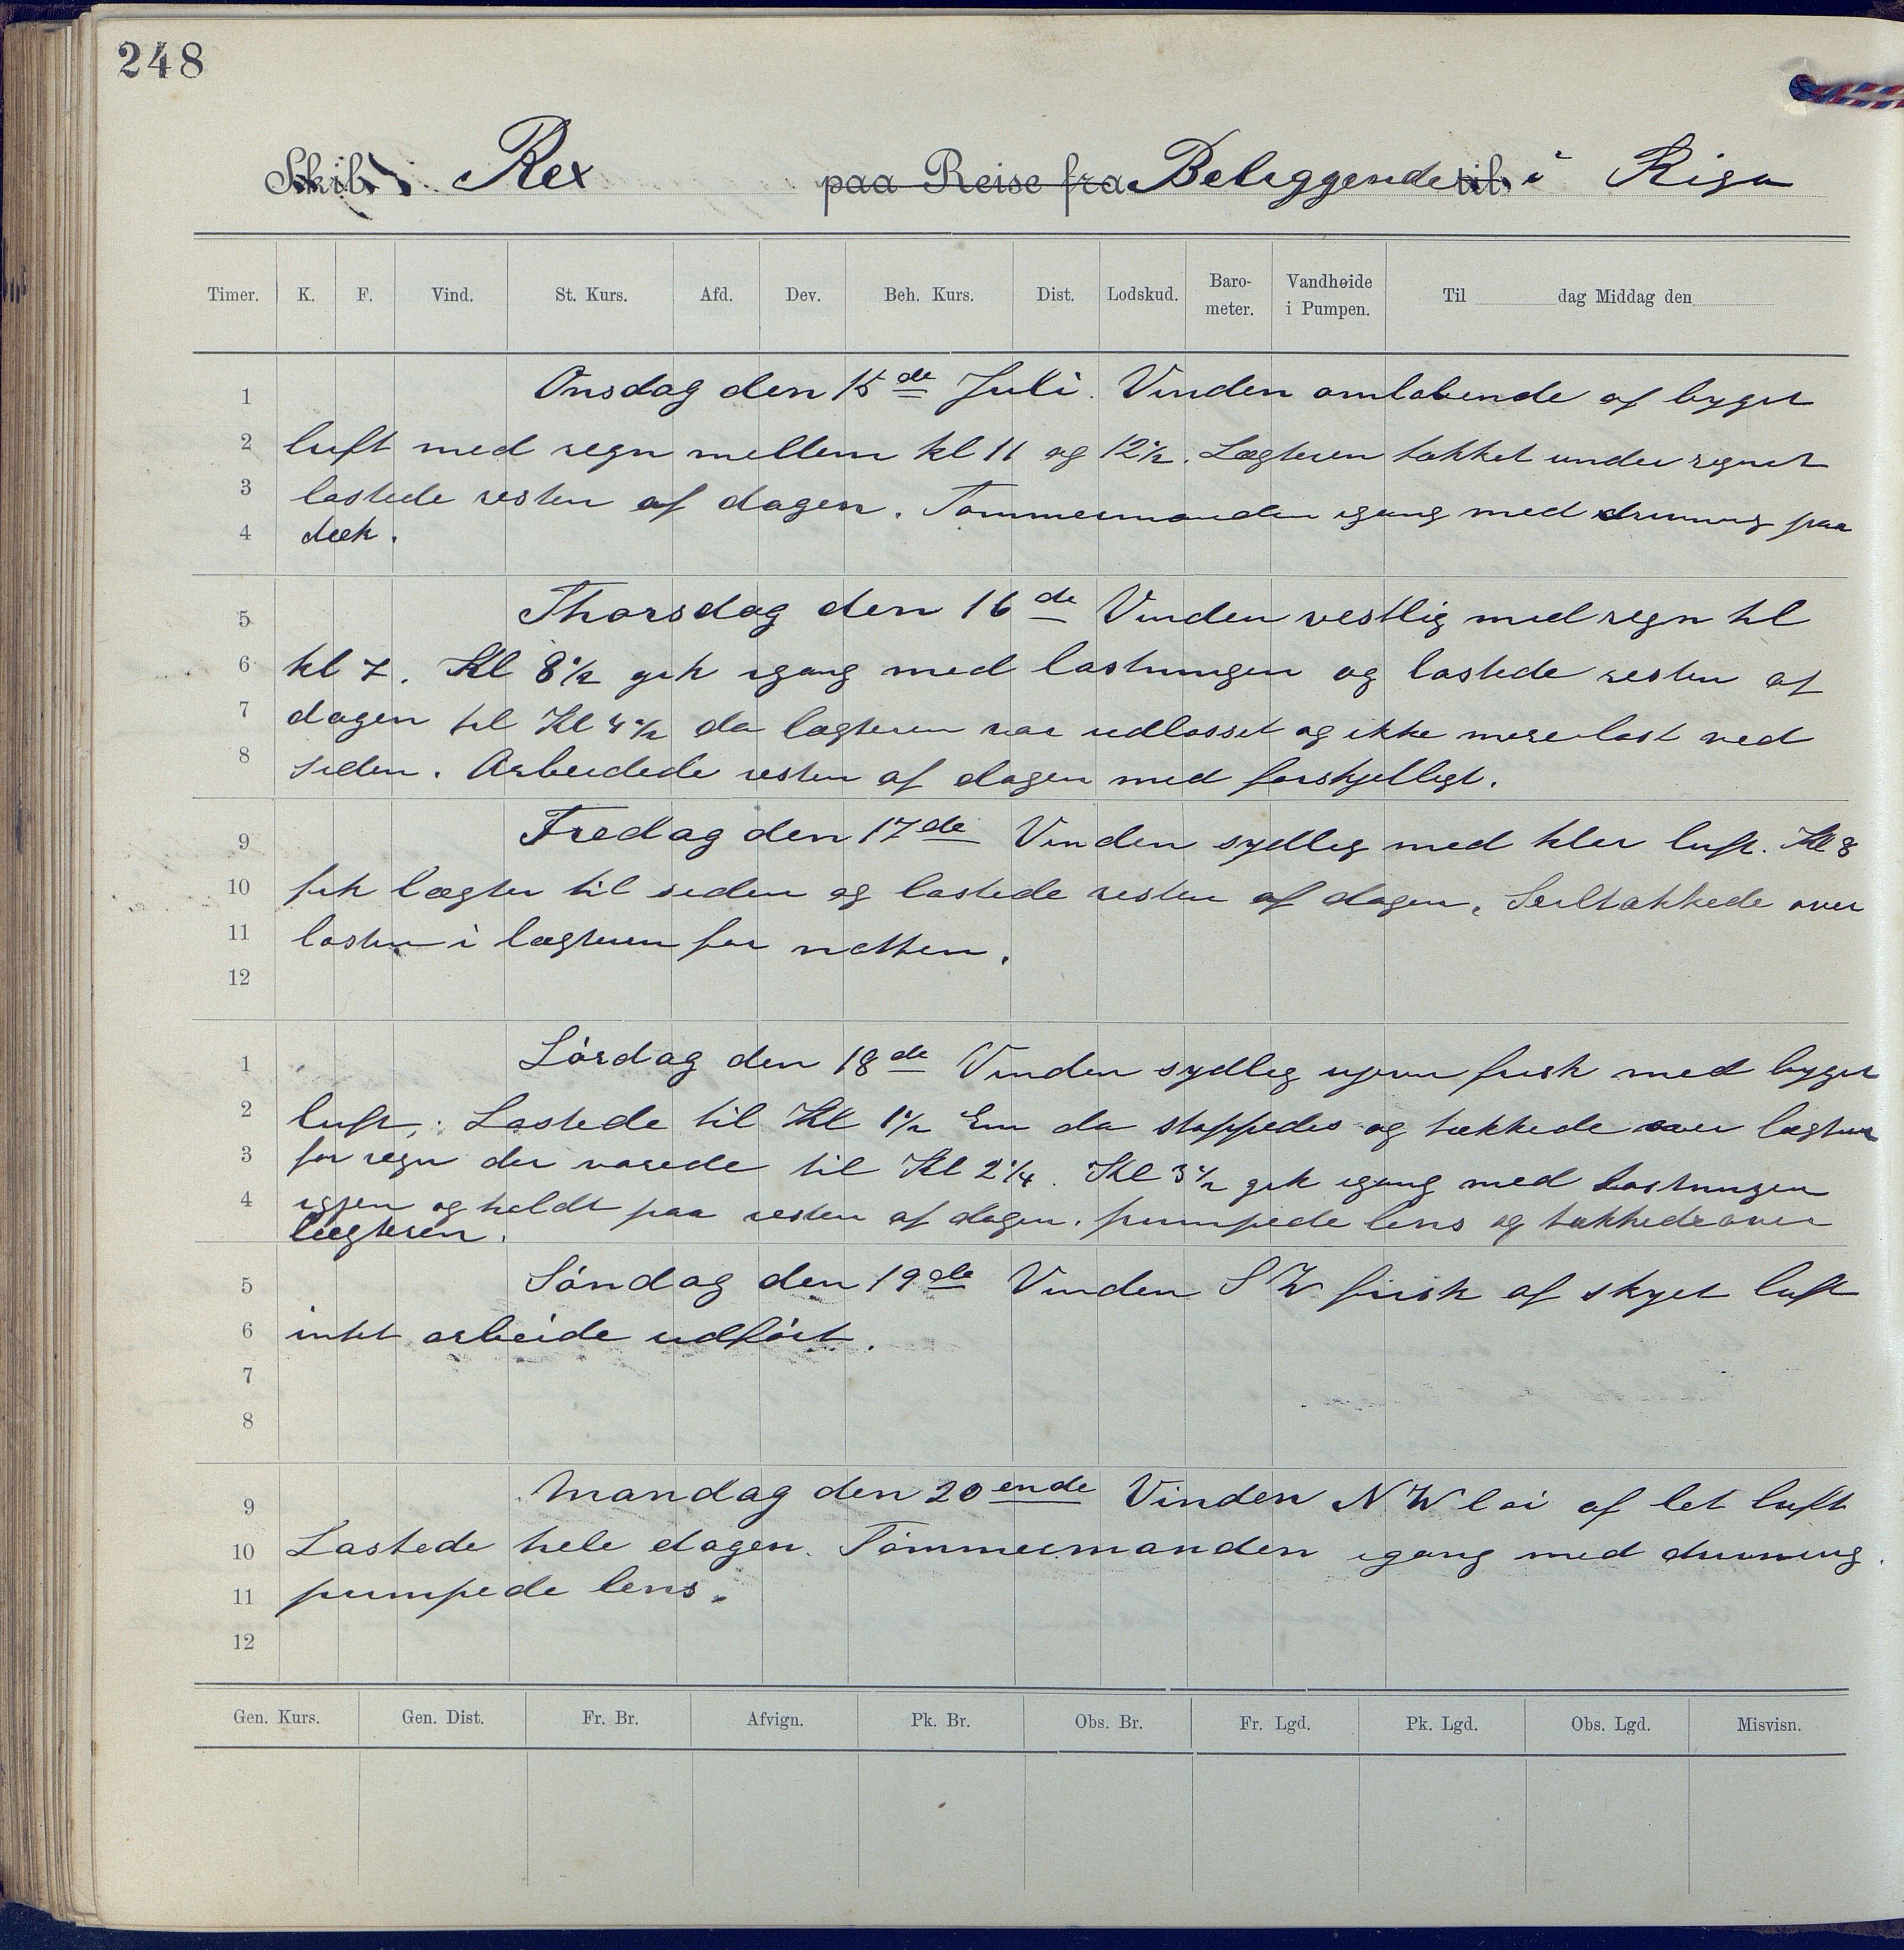 248
Skib Rex paa Reise fra Beliggende til i Riga
Timer. K. F. Vind. St. Kurs. Afd. Dev. Beh. Kurs. Dist. Lodskud. Baro-meter. Vandhøide i Pumpen. Til dag Middag den
1 Onsdag den 15de Juli. Vinden omløbende af byget
2 luft med regn mellem kl 11 og 12½. Lægteren tækket under regnet
3 lastede resten af dagen. Tømmermanden igang med drivning paa
4 dæk.
5 Thorsdag den 16de Vinden vestlig med regn til
6 kl 7. Kl 8½ gik igang med lastningen og lastede resten af
7 dagen til Kl 4½ da lægteren var udlosset og ikke mere last ved
8 siden. Arbeidede resten af dagen med forskjelligt.
9 Fredag den 17de Vinden sydlig med klar luft. Kl 8
10 fik lægter til siden og lastede resten af dagen. Seiltækkede over
11 lasten i lægteren for natten.
12
1 Lördag den 18de Vinden sydlig ujevn frisk med byget
2 luft. Lastede til Kl 1½ Em da stoppedes og tækkede over lægteren
3 for regn der varede til Kl 2¼. Kl 3½ gik igang med lastningen
4 igjen og holdt paa resten af dagen. pumpede lens og tækkede over
lægteren.
5 Söndag den 19de Vinden SW frisk af skyet luft
6 intet arbeide udfört.
7
8
9 Mandag den 20ende Vinden NW lai af let luft
10 Lastede hele dagen. Tömmermanden igang med drivning.
11 pumpede lens.
12
Gen. Kurs. Gen. Dist. Fr. Br. Afvign. Pk. Br. Obs. Br. Fr. Lgd. Pk. Lgd. Obs. Lgd. Misvisn.